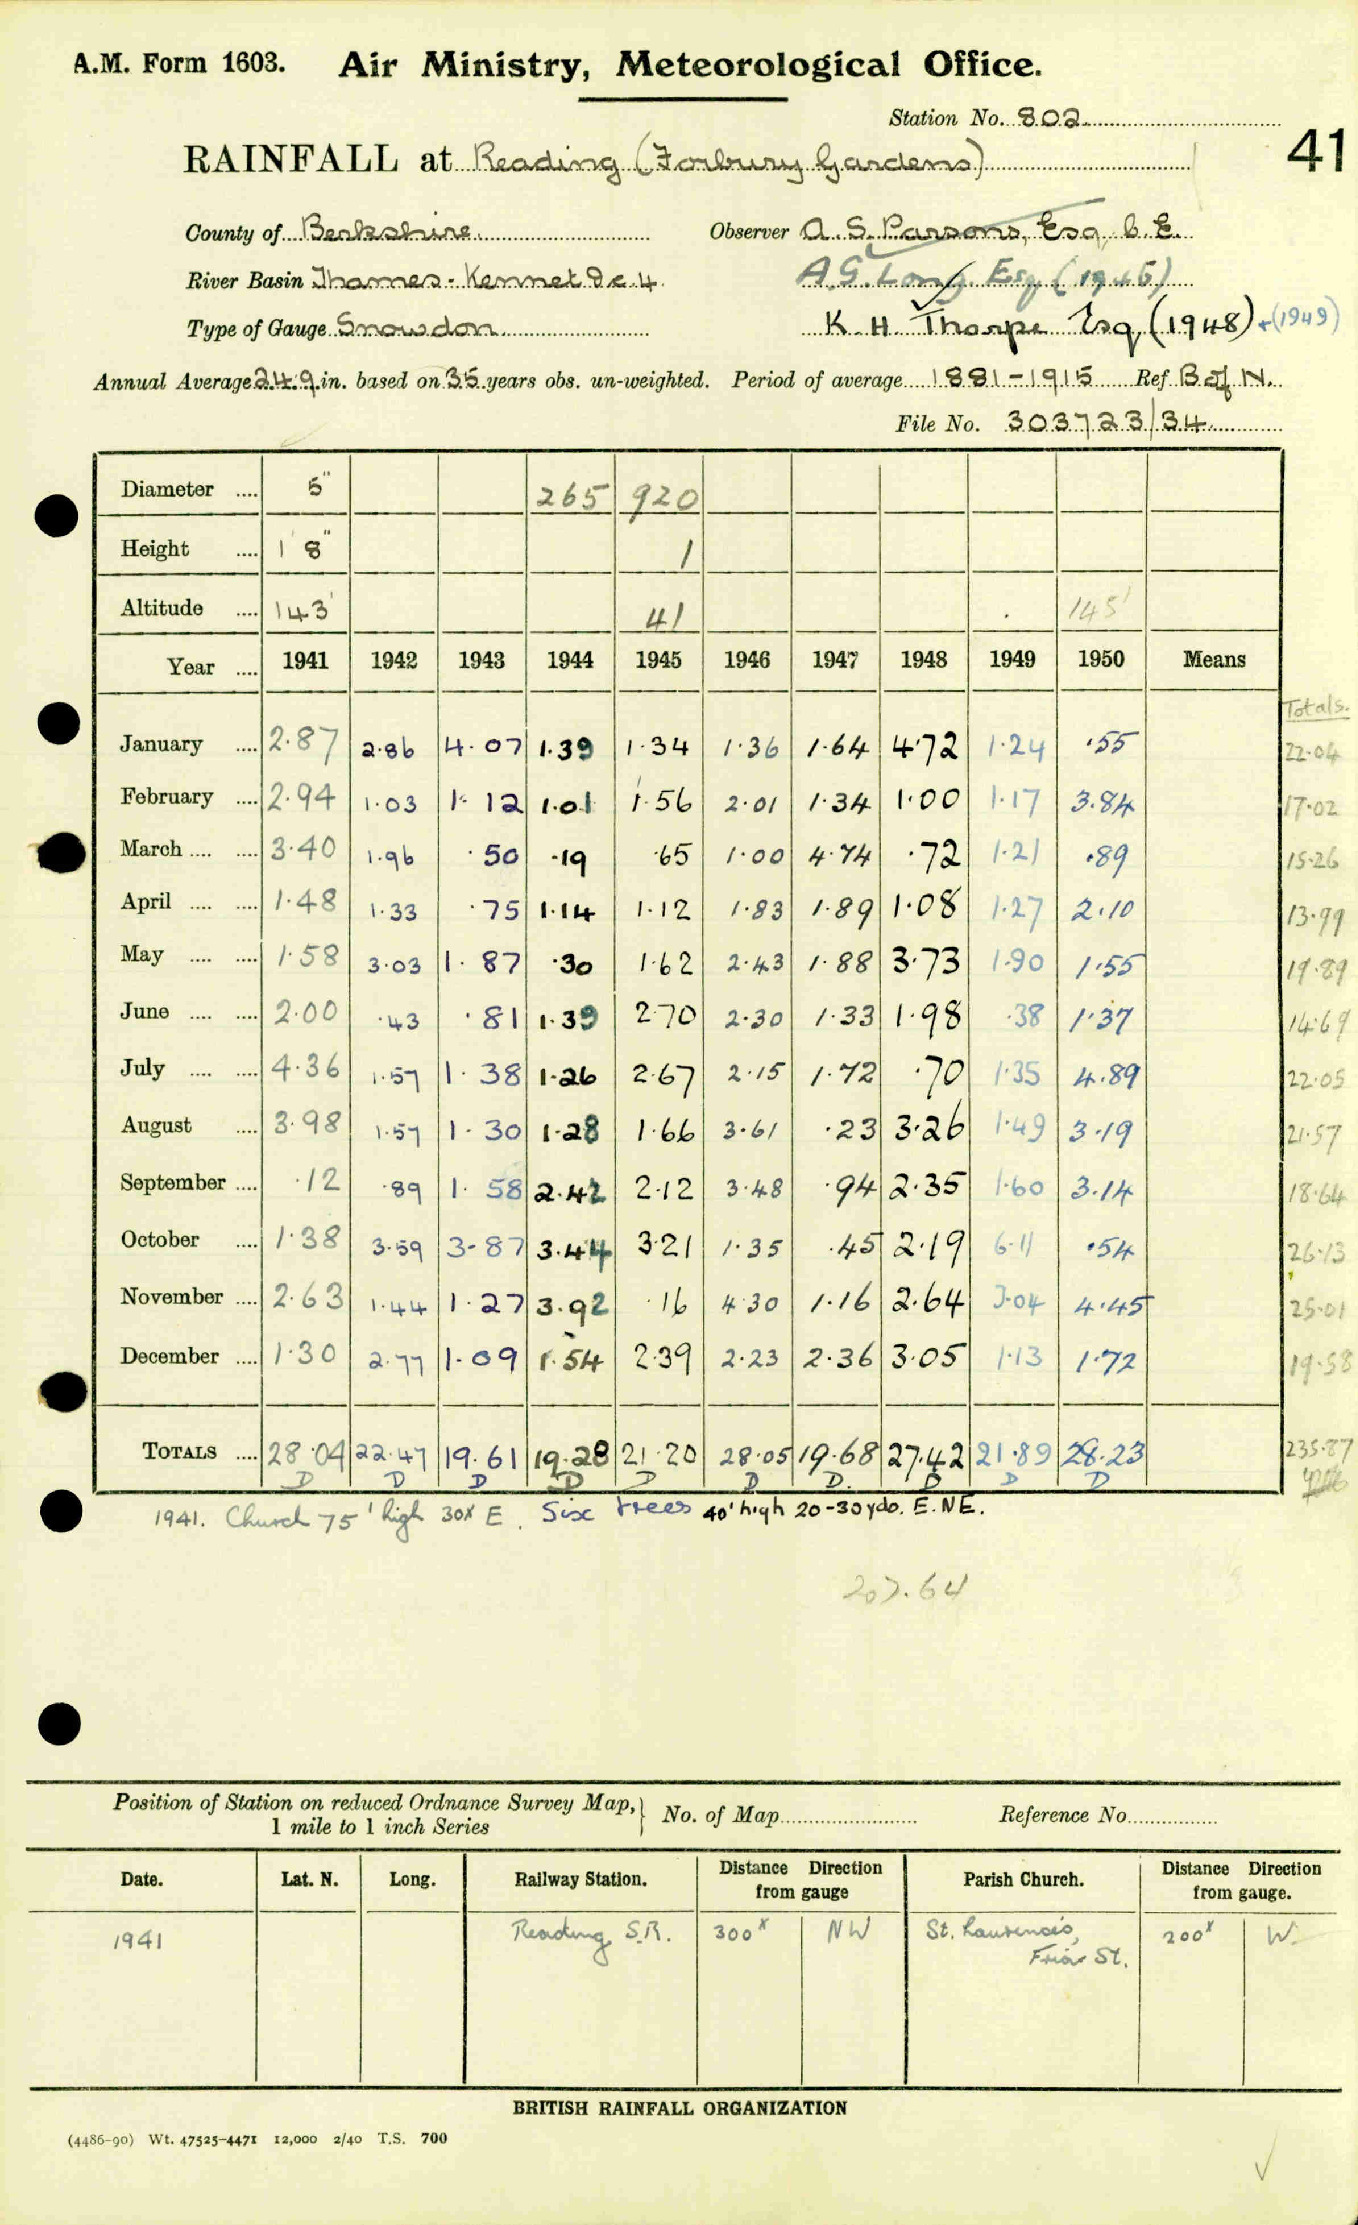 A.M. Form 1603. Air Ministry, Meteorological Office.
Station No. 802
41
RAINFALL at Reading (Forbury Gardens)
County of Berkshire Observer A. S. Parsons, Esq, C.E.
River Basin Thames - Kennet &c. 4. A.G. Long. Esq (1946)
Type of Gauge Snowdon K. H. Thorpe Esq, (1948) + (1949)
Annual Average 24.9 in. based on 35 years obs. un-weighted. Period of average 1881-1915 Ref B of N.
File No. 303723/34
Diameter .... 5" 265 920
Height .... 1' 8" 1
Altitude .... 143' 41 145'
Year .... 1941 1942 1943 1944 1945 1946 1947 1948 1949 1950 Means
Totals.
January .... 2.87 2.86 4.07 1.39 1.34 1.36 1.64 4.72 1.24 .55 22.04
February .... 2.94 1.03 1.12 1.01 1.56 2.01 1.34 1.00 1.17 3.84 17.02
March .... .... 3.40 1.96 .50 .19 .65 1.00 4.74 .72 1.21 .89 15.26
April .... .... 1.48 1.33 .75 1.14 1.12 1.83 1.89 1.08 1.27 2.10 13.99
May .... .... 1.58 3.03 1.87 .30 1.62 2.43 1.88 3.73 1.90 1.55 19.89
June .... .... 2.00 .43 .81 1.39 2.70 2.30 1.33 1.98 .38 1.37 14.69
July .... .... 4.36 1.57 1.38 1.26 2.67 2.15 1.72 .70 1.35 4.89 22.05
August .... 3.98 1.57 1.30 1.28 1.66 3.61 .23 3.26 1.49 3.19 21.57
September .... .12 .89 1.58 2.42 2.12 3.48 .94 2.35 1.60 3.14 18.64
October .... 1.38 3.59 3.87 3.44 3.21 1.35 .45 2.19 6.11 .54 26.13
November .... 2.63 1.44 1.27 3.92 .16 4.30 1.16 2.64 3.04 4.45 25.01
December .... 1.30 2.77 1.09 1.54 2.39 2.23 2.36 3.05 1.13 1.72 19.58
TOTALS .... 28.04 22.47 19.61 19.28 21.20 28.05 19.68 27.42 21.89 28.23 235.87
D D D D D D D. D D D
1941. Church 75' high 30x E. Six trees 40' high 20-30yds. E. NE.
207.64
Position of Station on reduced Ordnance Survey Map, 1 mile to 1 inch Series } No. of Map Reference No.
Date. Lat. N. Long. Railway Station. Distance Direction from gauge Parish Church. Distance Direction from gauge.
1941 Reading S.R. 300x NW St. Laurence's, Friar St. 200x W.
BRITISH RAINFALL ORGANIZATION
(4486-90) Wt. 47525-4471 12,000 2/40 T.S. 700